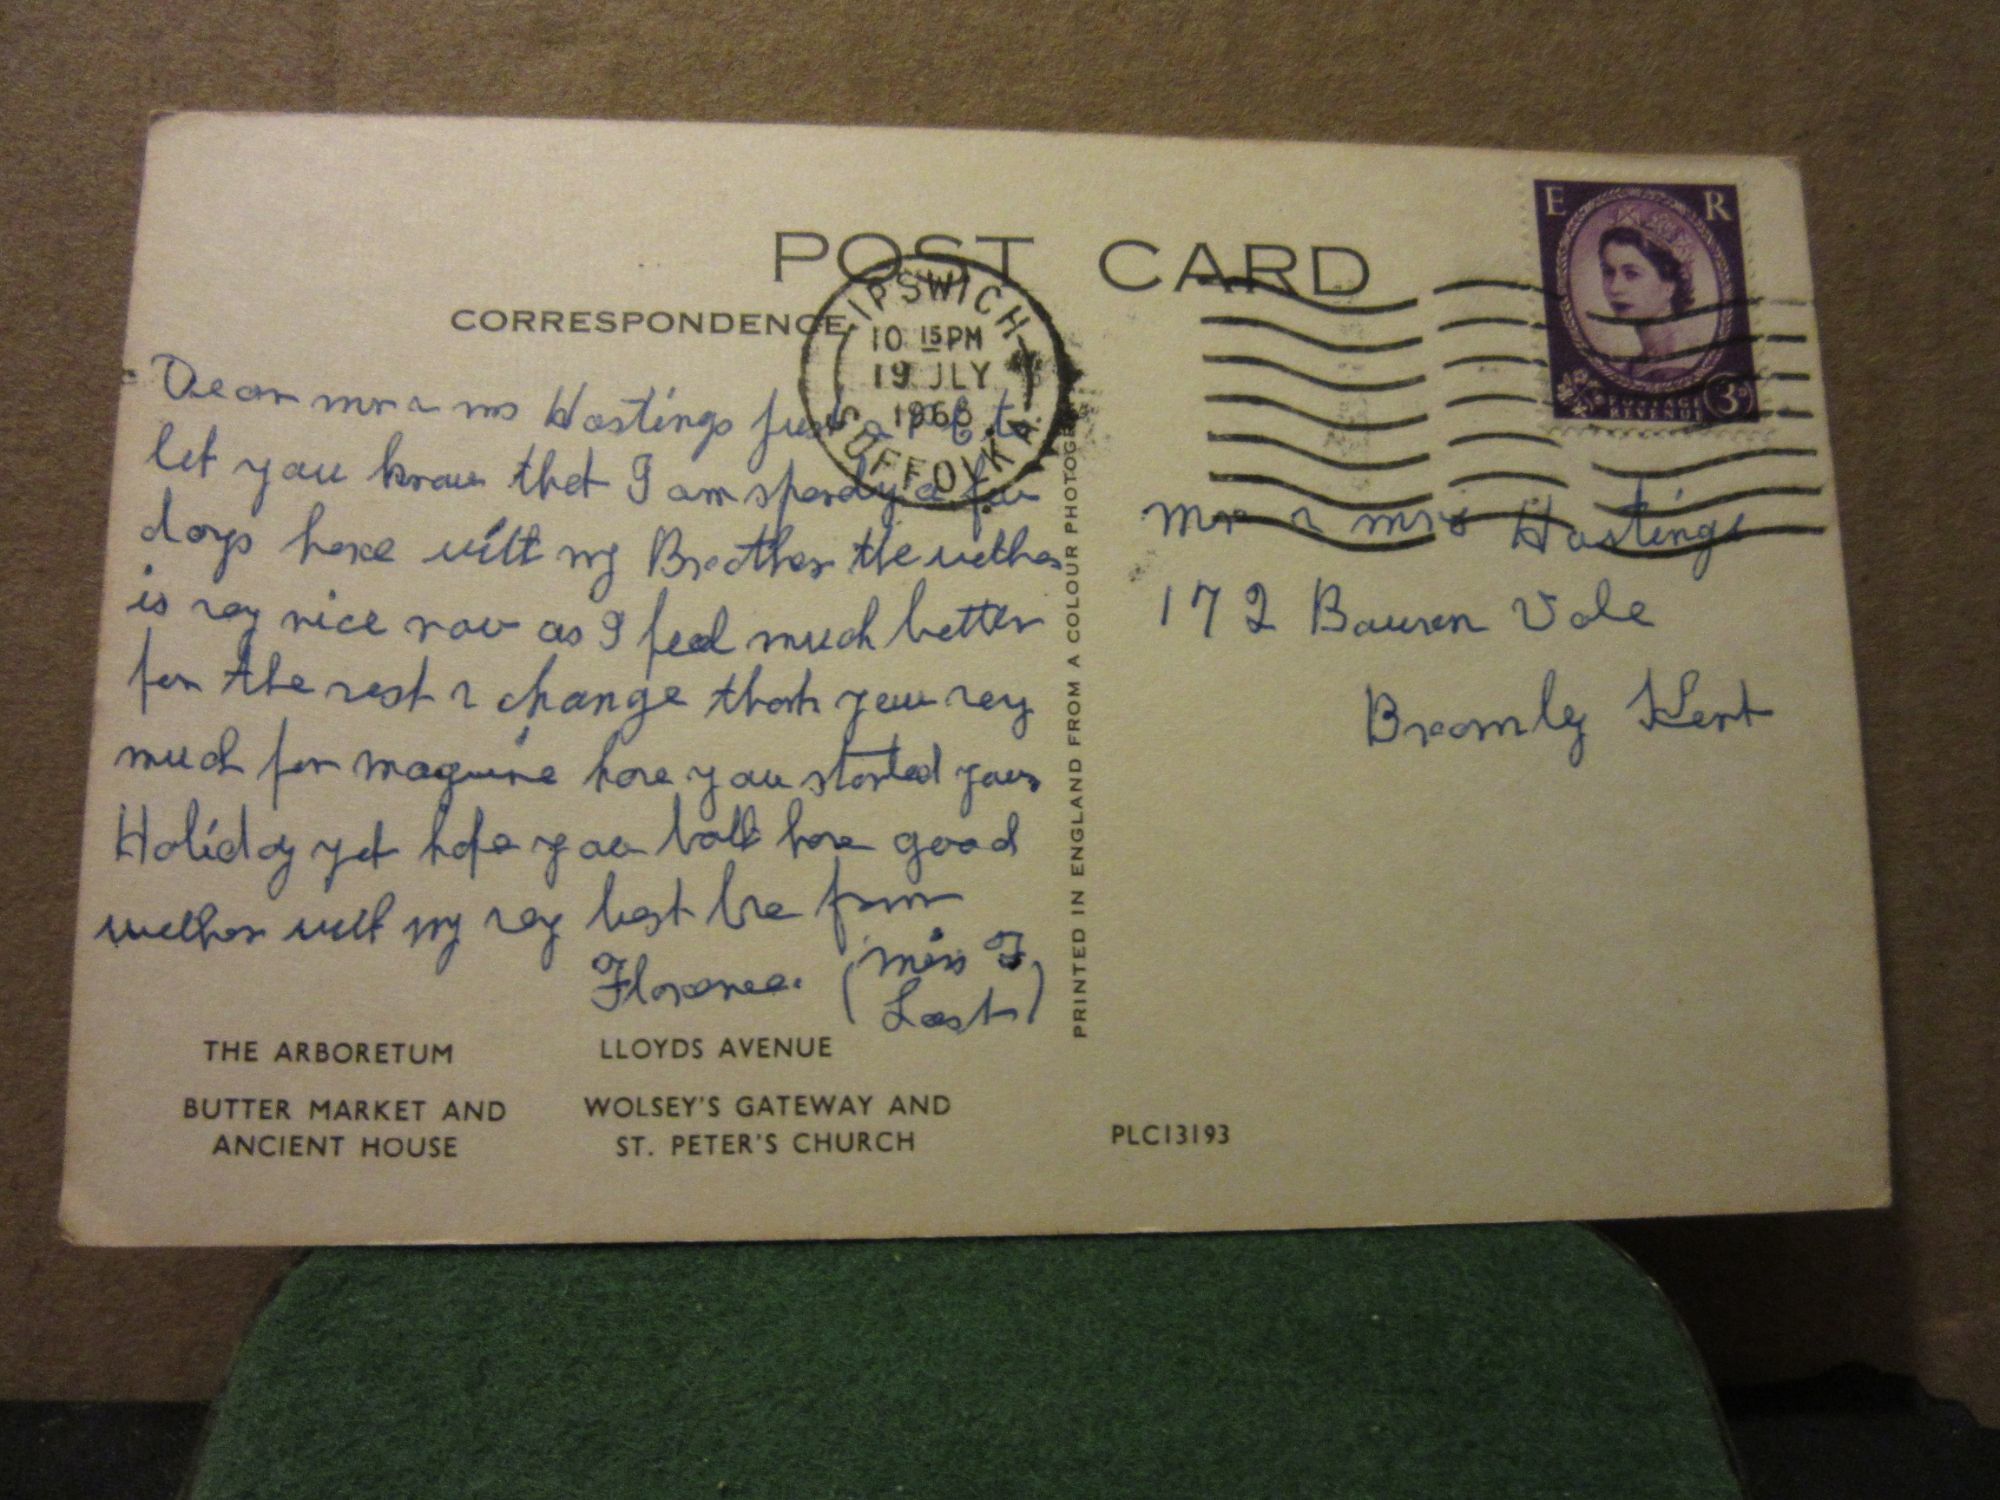 POST CARD
CORRESPONDENCE
IPSWICH
10 15 PM
19 JLY
196
SUFFOLK
E R
POSTAGE
REVENUE
3D
Dear mr & ms Hastings just a P C to
let you know that I am spendy a few
days here with my Brother the wether
is vey nice now as I feel much better
for the rest & change thank you vey
much for magzine have you started your
Holiday yet hope you both have good
wether with my vey best love from
Florence. (miss F
Last)
mr & mrs Hastings
172 Vale
Bromly Kent
THE ARBORETUM
LLOYDS AVENUE
BUTTER MARKET AND
ANCIENT HOUSE
WOLSEY'S GATEWAY AND
ST. PETER'S CHURCH
PRINTED IN ENGLAND FROM A COLOUR PHOTOGE
PLC13193